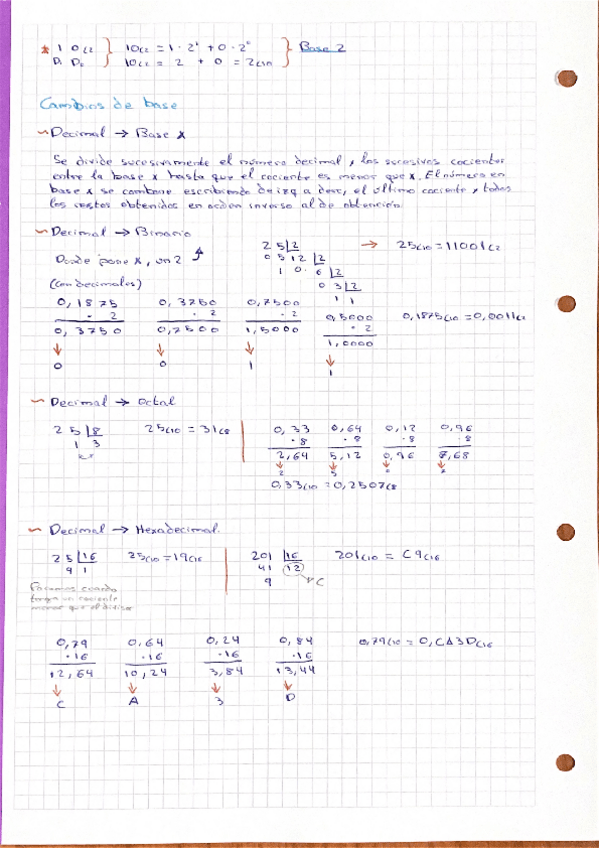 * 1 0(2 } 10(2 = 1 · 2¹ + 0 · 2⁰ } Base 2
D₁ D₀ 10(2 = 2 + 0 = 2(10
Cambios de base
~ Decimal → Base x
Se divide sucesivamente el número decimal, los sucesivos cocientes
entre la base x hasta que el cociente es menor que x. El número en
base x se combone escribiendo de izq a derc, el último cociente y todos
los restos obtenidos en orden inverso al de obtención
~ Decimal → Binario
Donde pone x, un 2
25 |2 → 25(10 = 11001(2
05 12 |2
1 0 6 |2
0 3 |2
1 1
(con decimales)
0,1875 0,3750 0,7500 0,5000 0,1875(10 = 0,0011(2
· 2 · 2 · 2 · 2
0,3750 0,7500 1,5000 1,0000
0 0 1 1
~ Decimal → Octal
25 |8 25(10 = 31(8
1 3
0,33 0,64 0,12 0,96
·8 ·8 ·8 ·8
2,64 5,12 0,96 7,68
0,33(10 = 0,2507(8
~ Decimal → Hexadecimal
25 |16 25(10 = 19(16
9 1
201 |16 201(10 = C9(16
41 12
9 C
Paramos cuando
tenga un cociente
menor que el divisor
0,79 0,64 0,24 0,84 0,79(10 = 0,CA3D(16
·16 ·16 ·16 ·16
12,64 10,24 3,84 13,44
C A 3 D